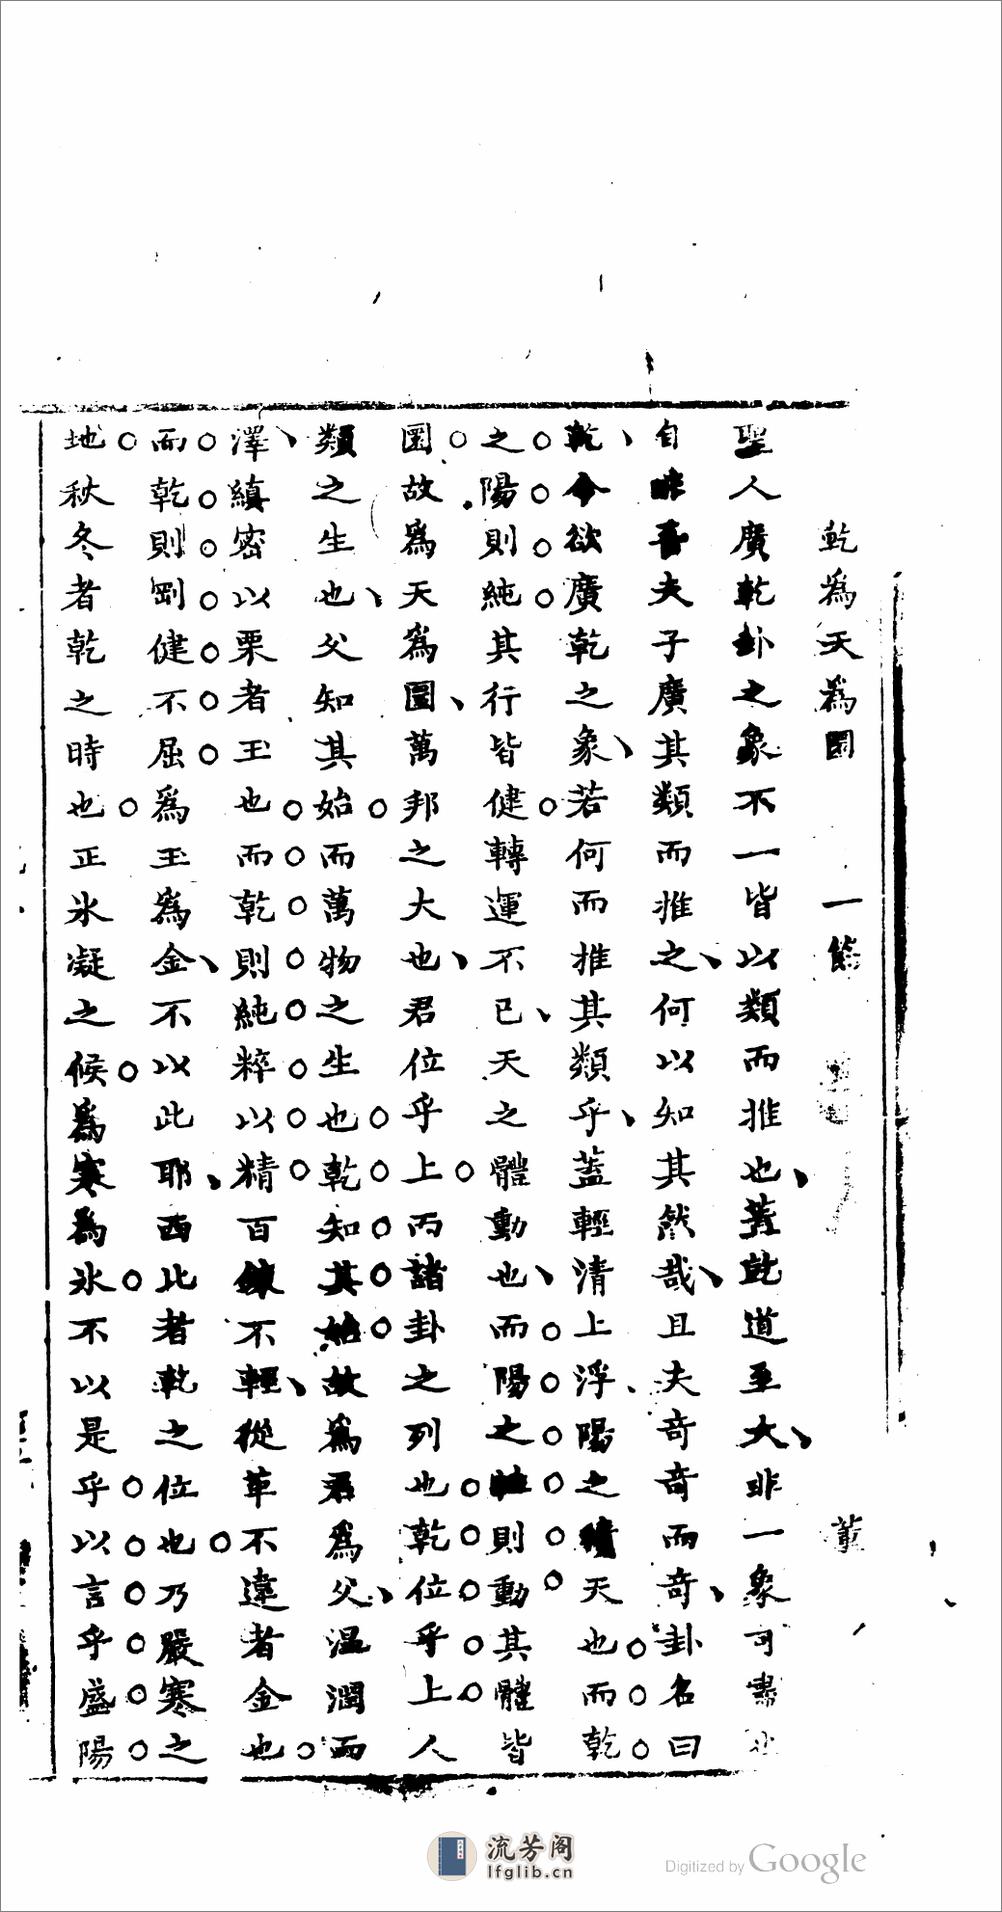 乾為天為圜 一節
聖人廣乾卦之象不一皆以類而推也蓋乾道至大非一象可盡
自非吾夫子廣其類而推之何以知其然哉且夫奇奇而奇卦名曰
乾今欲廣乾之象若何而推其類乎蓋輕清上浮陽之積天也而乾
之陽則純其行皆健轉運不已天之體動也而陽之性則動其體皆
圜故為天為圜萬邦之大也君位乎上而諸卦之列也乾位乎上人
類之生也父知其始而萬物之生也乾知其始故為君為父溫潤而
澤縝密以栗者玉也而乾則純粹以精百鍊不輕從革不違者金也
而乾則剛健不屈為玉為金不以此耶西北者乾之位也乃嚴寒之
地秋冬者乾之時也正氷凝之候為寒為氷不以是乎以言乎盛陽
流芳阁
lfglib.cn
Digitized by Google